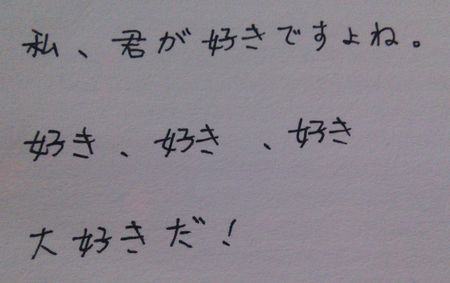 私、君が好きですよね。
好き、好き、好き
大好きだ!